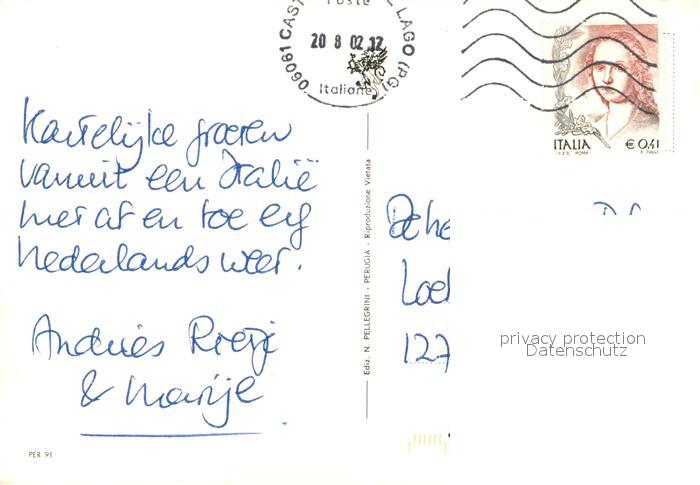 Poste
06061 CAST LAGO (PG)
20 8 02 12
Italiane
ITALIA
€ 0,41
I.P.Z.S. ROMA
Hartelijke groeten
vanuit een Italië
met af en toe erg
Nederlands weer.
Andries
& Marije
PER 91
Ediz. N. PELLEGRINI - PERUGIA - Riproduzione Vietata
De he
Loe
127
privacy protection
Datenschutz